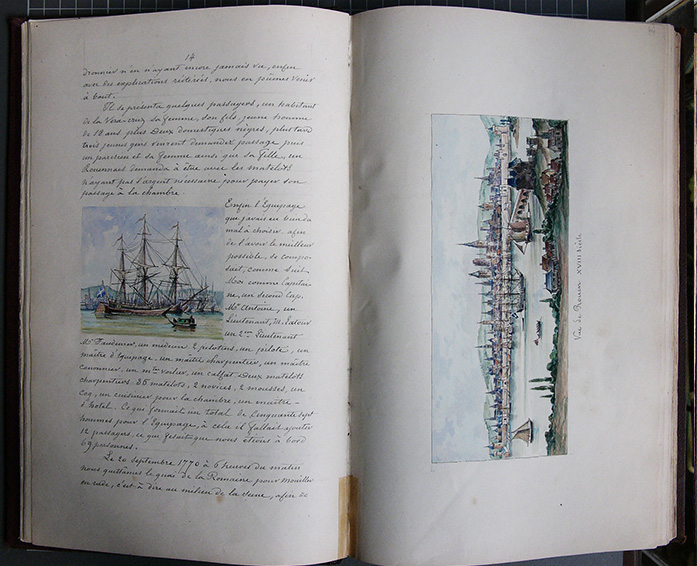 14
n'en n'ayant encore jamais vu, enfin
avec des explications réiterées, nous en pûmes venir
à bout.
Il se présenta quelques passagers, un habitant
de la Vera-cruz sa femme, son fils, jeune homme
de 18 ans plus deux domestiques nègres, plus tard
trois jeunes gens vinrent demander passage puis
un parent et sa femme ainsi que sa fille, un
Rouennais demanda à être avec les matelots
n'ayant pas l'argent nécessaire pour payer son
passage à la chambre
Enfin l'Equipage
que j'avais eu bien du
mal à choisir afin
de l'avoir le meilleur
possible, se compo-
sait, comme suit.
Moi comme Capitai-
ne, un Second Cap.
Mr Antoine, un
Lieutenant, M.
un 2me Lieutenant
Mr un médecin 2 pilotins, un pilote, un
maître d'Equipage, un maître charpentier, un maître
canonnier, un me voilier, un calfat deux matelots
charpentiers 36 matelots, 2 novices, 2 mousses, un
coq, un cuisinier pour la chambre, un maître-
d'hotel. Ce que formait un total de Cinquante sept
hommes pour l'Equipage, à cela il fallait ajouter
12 passagers, ce que faisait que nous étions à bord
69 personnes.
Le 20 Septembre 1770 à 6 heures du matin
nous quittâmes le quai de la Romaine pour mouiller
en rade, c'est à dire au milieu de la Seine, afin de
Vue de Rouen XVIII siècle